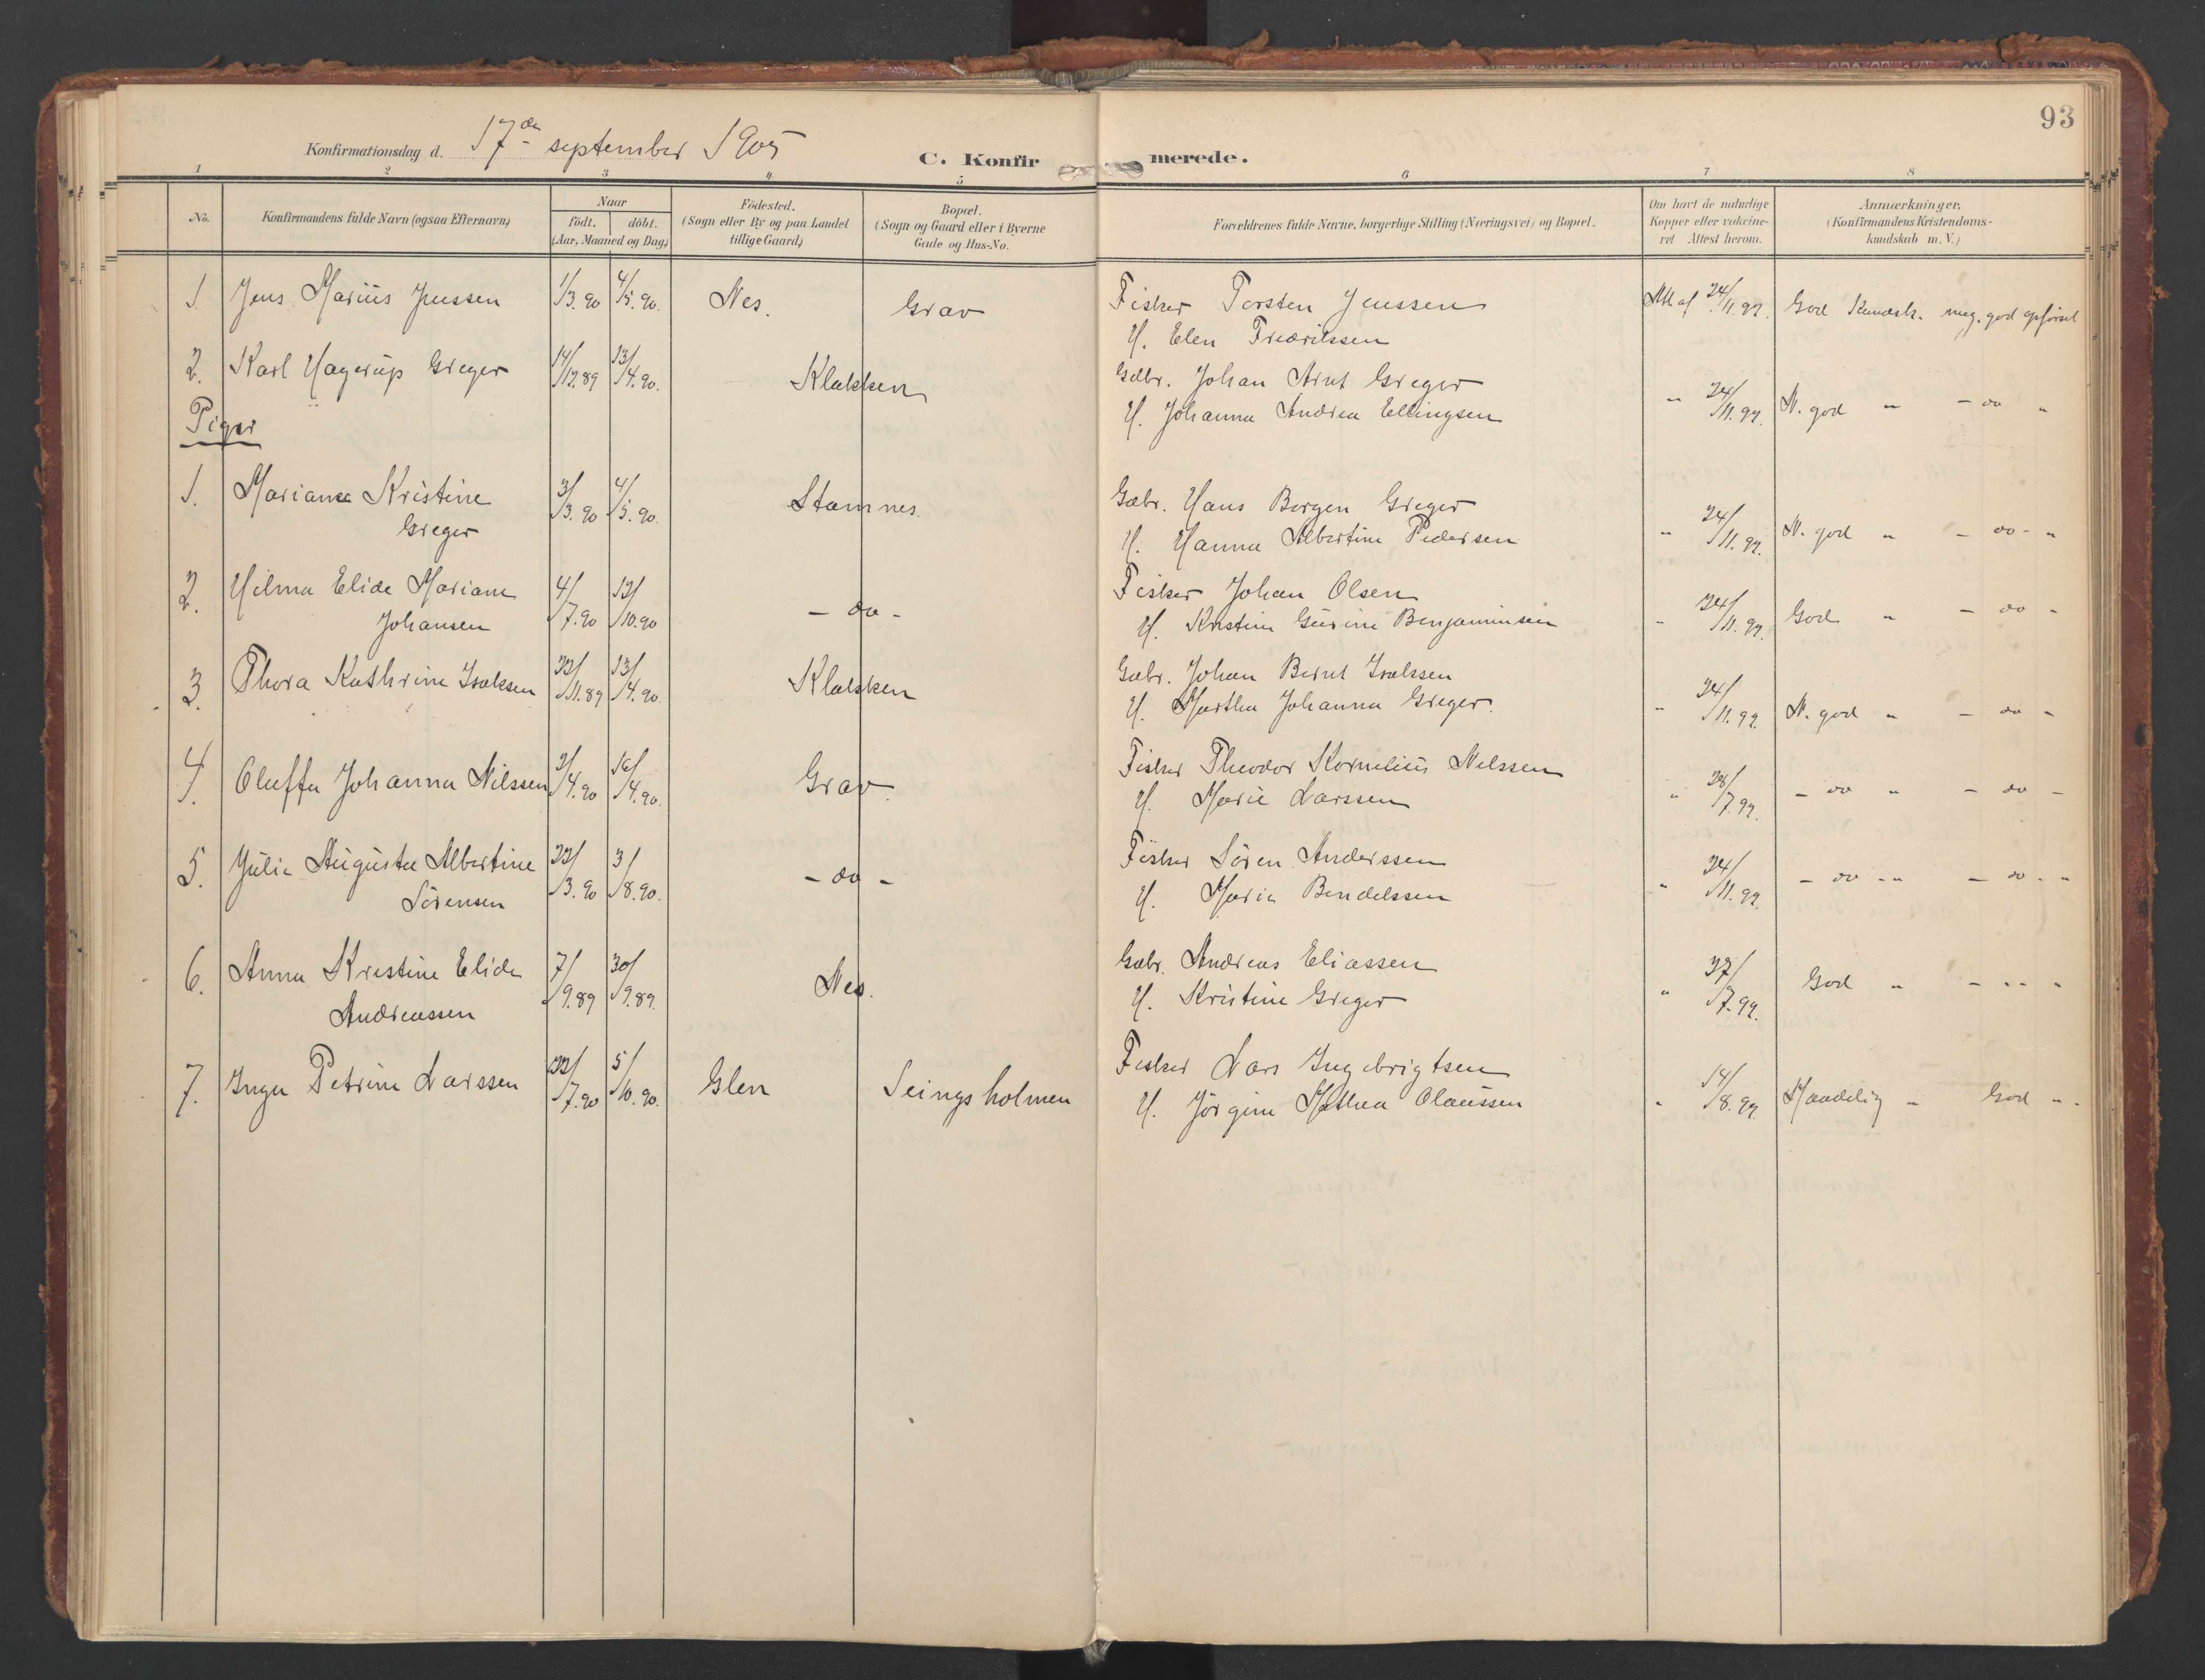 93
Konfirmationsdag d. 17de september 1905
C. Konfirmerede.
1 2 3 4 5 6 7 8
No.
Konfirmandens fulde Navn (ogsaa Efternavn)
Naar
födt. döbt.
(Aar, Maaned og Dag)
Födested.
(Sogn eller By og paa Landet
tillige Gaard)
Bopæl.
(Sogn og Gaard eller i Byerne
Gade og Hus-No.
Forældrenes fulde Navne, borgerlige Stilling (Næringsvei) og Bopæl.
Om havt de naturlige
Kopper eller vakcine-
ret Attest herom.
Anmærkninger.
(Konfirmandens Kristendoms-
kundskab m. V.)
1. Jens Marius Jenssen 1/3.90 4/5.90. Nes. Grav Fisker Torsten Jenssen 24/11.99. God Kundsk. meg. god opførsel
H. Elen Fredrikssen
2. Karl Hagerup Greger 14/12.89 13/4.90. Klakken Gdbr. Johan Arnt Greger
H. Johanna Andrea Ellingsen " 24/11.99. M. god " - do "
Piger
1. Mariane Kristine 3/3.90 4/5.90. Stamnes. Gdbr. Hans Borgen Greger
Greger H. Hanna Albertine Pedersen " 24/11.99. M. god " - do - "
2. Hilma Elide Mariane 4/7.90 12/10.90 - do - Fisker Johan Olsen
Johansen H. Kristine Gurine Benjaminsen " 24/11.99. God " - do -
3. Thora Kathrine Isaksen 22/11.89 13/4.90. Klakken Gdbr. Johan Bernt Isakssen
H. Martha Johanna Greger. " 24/11.99 M. god " - do -
4. Oluffa Johanna Nilssen 2/4.90 16/4.90. Grav. Fisker Theodor Kornelius Nilssen
H. Marie Larssen " 28/7.99. - do " - do -
5. Julie Augusta Albertine 22/3.90 3/8.90. - do - Fisker Sören Anderssen
Sörensen H. Marie Bendikssen " 24/11.99. - do - " - do - "
6. Anna Kristine Elide 7/9.89 30/9.89. Nes. Gdbr. Andreas Eliassen
Andreassen H. Kristine Greger " 27/7.99. God " - " - "
7. Inga Petrine Larssen 22/7.90 5/10.90. Glen Seingsholmen Fisker Lars Ingebrigtsen
H. Jörgine Mathea Olaussen " 14/8.99 Maadelig " God " -